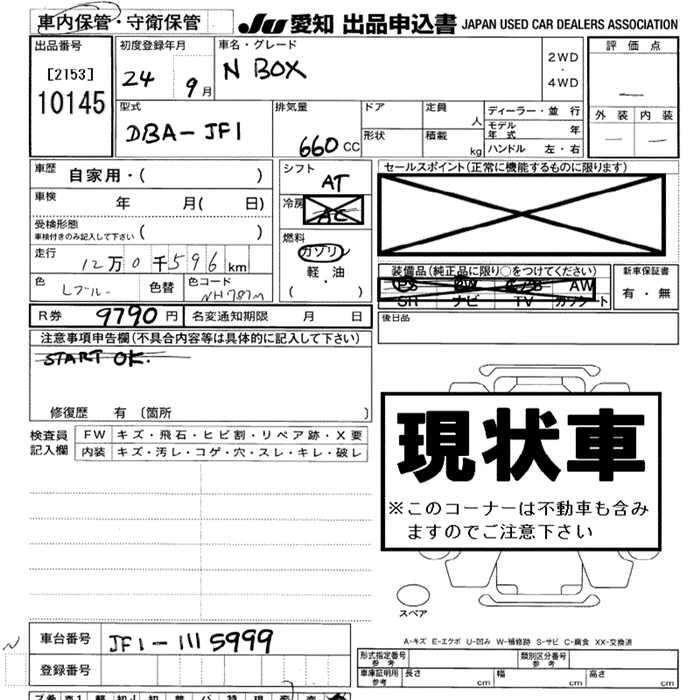 車内保管・守衛保管 JU 愛知 出品申込書 JAPAN USED CAR DEALERS ASSOCIATION
出品番号 初度登録年月 車名・グレード 評価点
[2153] 24 9月 N BOX 2WD・4WD
10145
型式 排気量 ドア 定員 人 ディーラー・並行 外装 内装
DBA-JF1 660CC 形状 積載 kg モデル年式 年
ハンドル 左・右
車歴 自家用・( ) シフト AT セールスポイント(正常に機能するものに限ります)
車検 年 月( 日) 冷房 AC
受検形態 車検付きのみ記入して下さい ( ) 燃料
走行 12万0千596km ガソリン
軽・油 装備品(純正品に限り○をつけてください) 新車保証書
色 Lブルー 色替 色コード NH787M ( ) PS PW AW 有・無
SH ナビ TV
R券 9790円 名変通知期限 月 日 後日品
注意事項申告欄(不具合内容等は具体的に記入して下さい)
START OK.
修復歴 有 〔箇所 〕
検査員記入欄 FW キズ・飛石・ヒビ割・リペア跡・X要
内装 キズ・汚レ・コゲ・穴・スレ・キレ・破レ
現状車
※このコーナーは不動車も含み
ますのでご注意下さい
スペア
A-キズ E-エクボ U-凹み W-補修跡 S-サビ C-腐食 XX-交換済
N 車台番号 JF1-1115999
登録番号
形式指定番号 参考 類別区分番号 参考
車庫証明用 参考 長さ cm 幅 cm 高さ cm